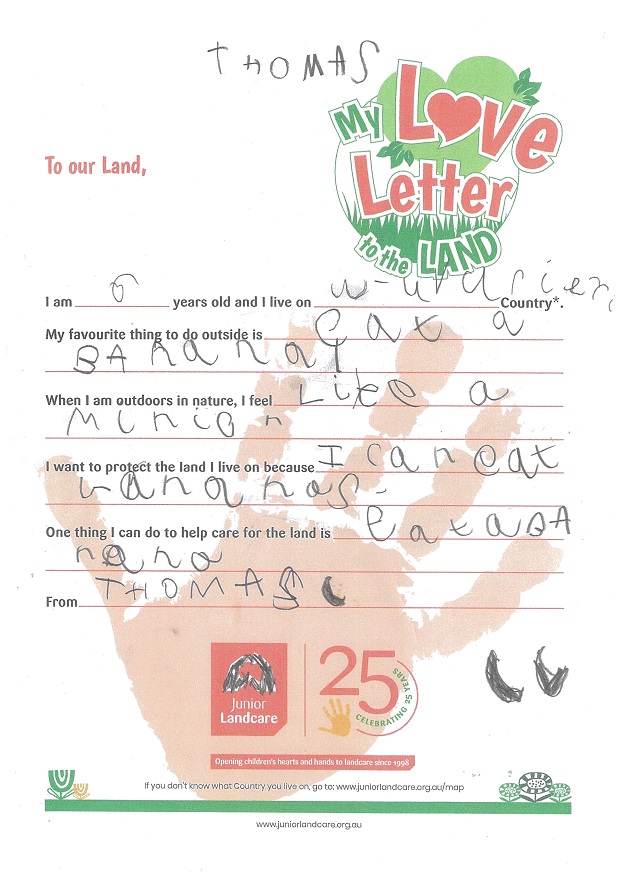 THOMAS
My Love
Letter
to the LAND
To our Land,
I am 6 years old and I live on Country*.
My favourite thing to do outside is eat a
BAnana
When I am outdoors in nature, I feel Like a
Minion
I want to protect the land I live on because I can eat
bananas.
One thing I can do to help care for the land is eat a BA
nana
From THOMAS
Junior
Landcare
25
CELEBRATING 25 YEARS
Opening children's hearts and hands to landcare since 1998
If you don't know what Country you live on, go to: www.juniorlandcare.org.au/map
www.juniorlandcare.org.au